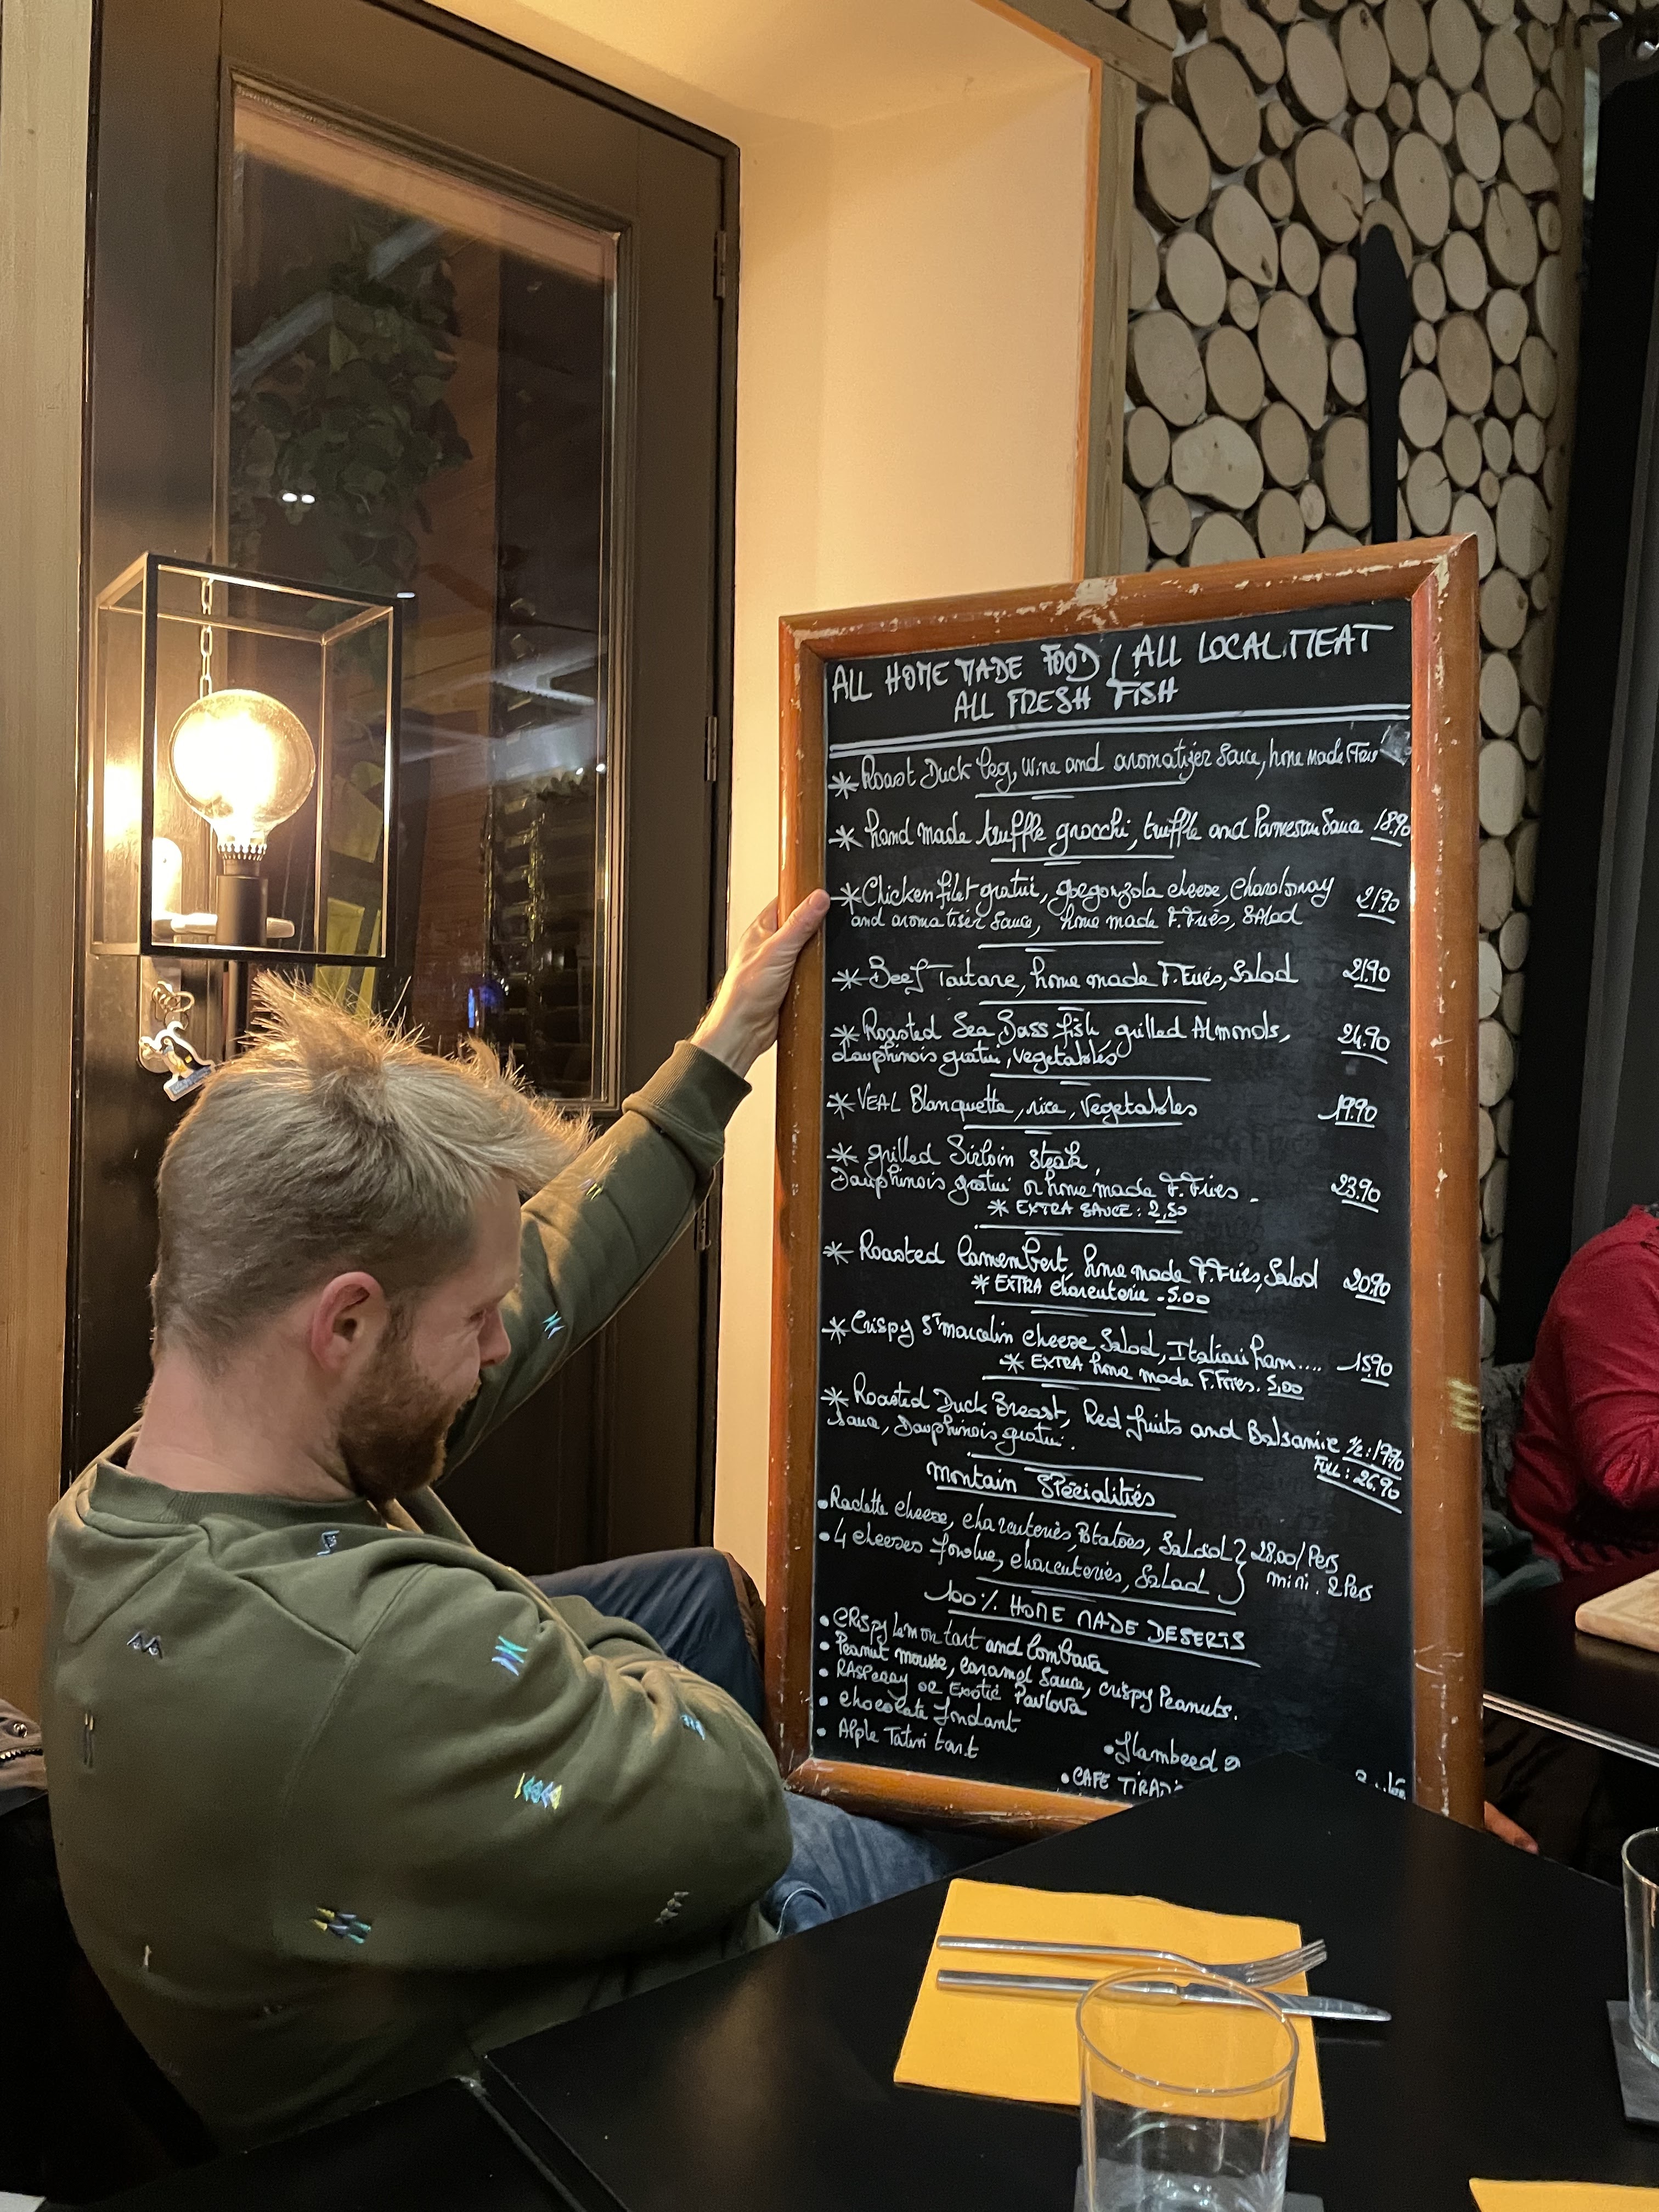 ALL HOME MADE FOOD / ALL LOCAL MEAT
ALL FRESH FISH
* Roast Duck leg, Wine and aromatizer Sauce, home made F.Fries
* hand made truffle gnocchi, truffle and Parmesan Sauce 18.90
* Chicken filet gratin, gorgonzola cheese, Chardonnay 21.90
and aromatiser Sauce, home made F.Fries, SALad
* Beef Tartare, home made F.Fries, Salad 21.90
* Roasted Sea Bass fish, grilled Almonds, 24.90
dauphinois gratin, vegetables
* VEAL Blanquette, rice, Vegetables 19.90
* grilled Sirloin steak,
Dauphinois gratin or home made F.Fries - 23.90
* EXTRA SAUCE : 2,50
* Roasted Camembert, home made F.Fries, Salad 20.90
* EXTRA charcuterie - 5.00
* Crispy St marcelin cheese Salad, Italian ham.... 15.90
* EXTRA home made F.Fries. 5,00
* Roasted Duck Breast, Red fruits and Balsamic 1/2 : 19.90
Sauce, Dauphinois gratin. FULL : 26.90
Montain Spécialitiés
• Raclette cheese, charcuteries, Potatoes, Salad } 28.00/Pers
• 4 cheeses fondue, charcuteries, Salad mini. 2 Pers
100% HOME MADE DESERTS
• CRISPY lemon tart and Combava
• Peanut mousse, caramel Sauce, crispy Peanuts.
• RASPERRY OR Exotic Pavlova
• chocolate fondant
• Apple Tatin tart
• flambeed
• CAFE